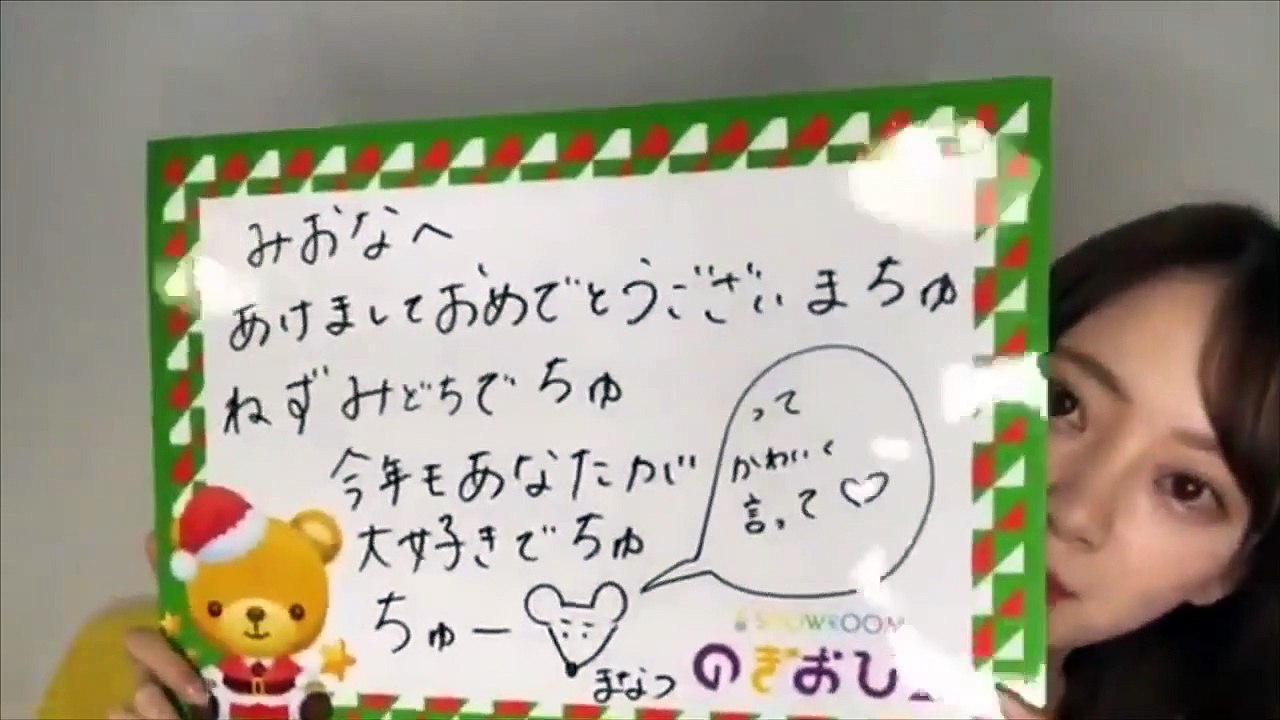 みおなへ
あけましておめでとうございまちゅ
ねずみどちでちゅ
今年もあなたが
大好きでちゅ
ちゅー
って
かわいく
言って♡
まなつ
SHOWROOM
のぎおび